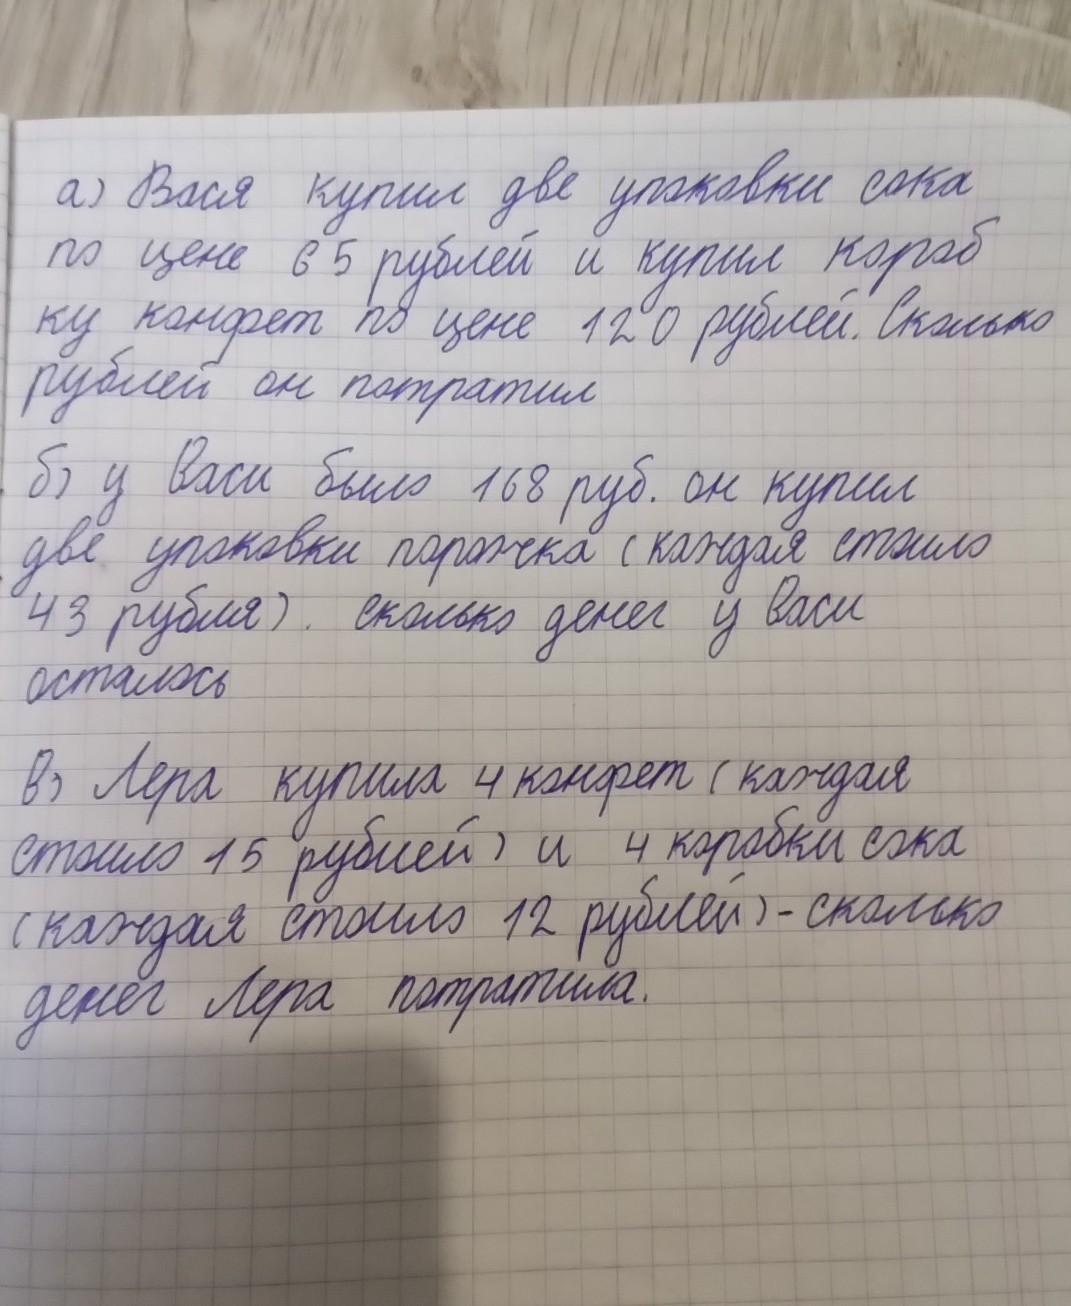 а) Вася купил две упаковки сока
по цене 65 рублей и купил короб
ку конфет по цене 120 рублей. Сколько
рублей он потратил
б) у Васи было 168 руб. он купил
две упаковки порожка (каждая стоило
43 рубля). сколько денег у Васи
осталось
в) Лера купила 4 конфет (каждая
стоило 15 рублей) и 4 коробки сока
(каждая стоило 12 рублей) - сколько
денег Лера потратила.